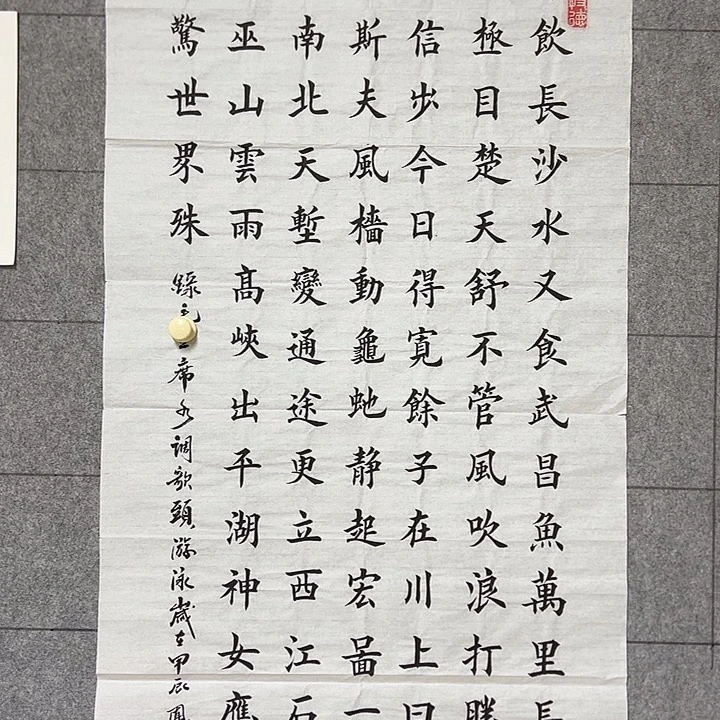 飲長沙水又食武昌魚萬里長
極目楚天舒不管風吹浪打勝
信步今日得寬餘子在川上曰
斯夫風檣動龜虵静起宏啚一
南北天塹變通途更立西江石
巫山雲雨髙峽出平湖神女應
驚世界殊
録毛席水調歌頭游泳歲在甲辰
德